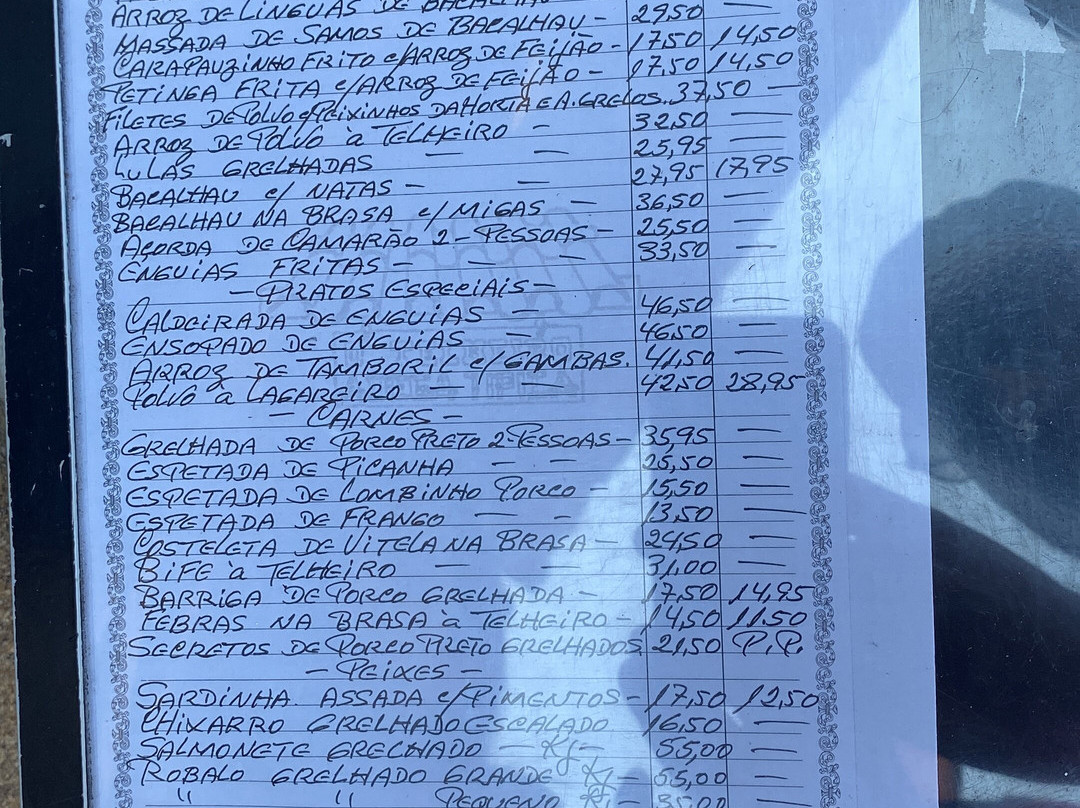 ARROZ DE LINGUAS DE BACALHAU 29,50 —
MASSADA DE SAMOS DE BACALHAU – 17,50 14,50
CARAPAUZINHO FRITO c/ARROZ DE FEIJÃO – 17,50 14,50
PETINGA FRITA c/ARROZ DE FEIJÃO –
FILETES DE POLVO c/PEIXINHOS DA HORTA E A. GRELOS. 37,50 —
ARROZ DE POLVO à TELHEIRO – 32,50 —
LULAS GRELHADAS — — 25,95 —
BACALHAU c/ NATAS – — 27,95 17,95
BACALHAU NA BRASA c/ MIGAS – 36,50 —
AÇORDA DE CAMARÃO 2-PESSOAS – 25,50 —
ENGUIAS FRITAS – — — 33,50 —
– PRATOS ESPECIAIS –
CALDEIRADA DE ENGUIAS — 46,50 —
ENSOPADO DE ENGUIAS — 46,50 —
ARROZ DE TAMBORIL c/ GAMBAS. 41,50 —
POLVO à LAGAREIRO — — 42,50 28,95
– CARNES –
GRELHADA DE PORCO PRETO 2-PESSOAS – 35,95 —
ESPETADA DE PICANHA — — 25,50 —
ESPETADA DE LOMBINHO PORCO – 15,50 —
ESPETADA DE FRANGO — – 13,50 —
COSTELETA DE VITELA NA BRASA – 24,50 —
BIFE à TELHEIRO — — 31,00 —
BARRIGA DE PORCO GRELHADA – 17,50 14,95
FEBRAS NA BRASA à TELHEIRO – 14,50 11,50
SECRETOS DE PORCO PRETO GRELHADOS 21,50 P.P.
– PEIXES –
SARDINHA ASSADA c/PIMENTOS – 17,50 12,50
CHIXARRO GRELHADO ESCALADO 16,50 —
SALMONETE GRELHADO — Kg – 55,00 —
ROBALO GRELHADO GRANDE Kg – 55,00 —
" " PEQUENO Kg – 35,00 —